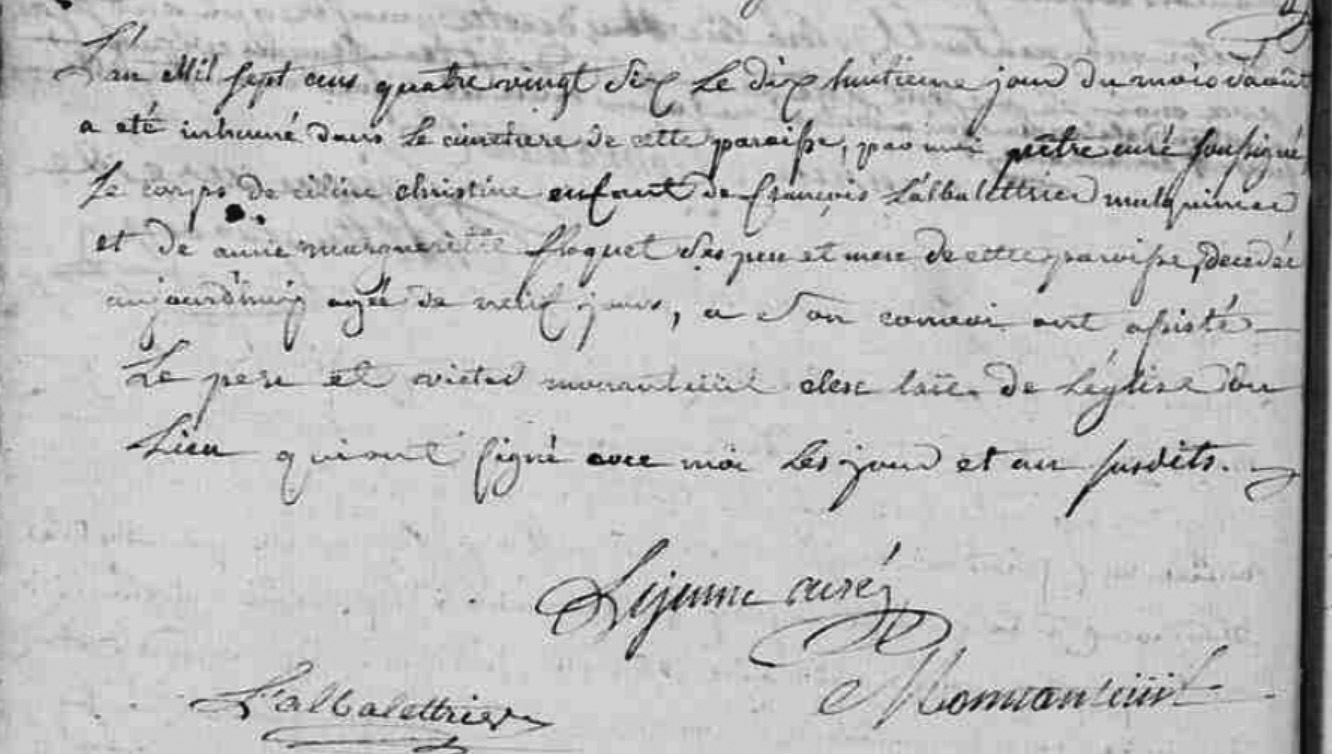 L'an Mil sept cens quatre vingt dix Le dix huitieme jour du mois d'août
a été inhumé dans Le cimetiere de cette paroisse, par moi prêtre curé soussigné,
Le corps de céline christine enfant de françois L'albalettrier mulquinier
et de anne margueritte floquet ses pere et mere de cette paroisse, décédée
aujourd'huy agée de neuf jours, a son convoi ont assisté
Le père et victor monanteüil clerc laïc de L'église du
Lieu qui ont signé avec moi Les jour et an susdits.
Lejeune curé
L'albalettrier Monanteüil